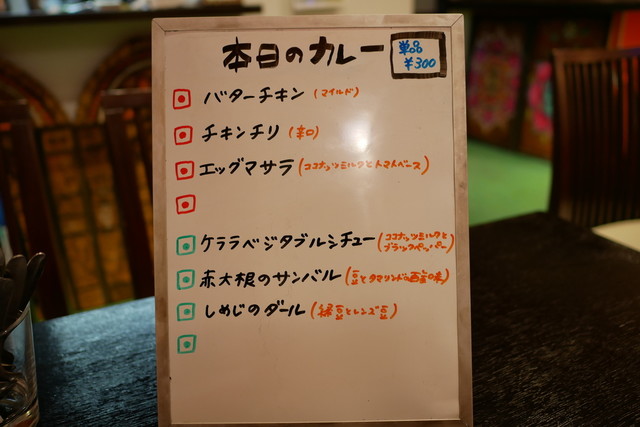 本日のカレー
単品
¥300
バターチキン (マイルド)
チキンチリ (辛口)
エッグマサラ (ココナッツミルクとトマトベース)
ケララベジタブルシチュー (ココナッツミルクと
ブラックペッパー)
赤大根のサンバル (豆とタマリンドの酸味)
しめじのダール (緑豆とレンズ豆)